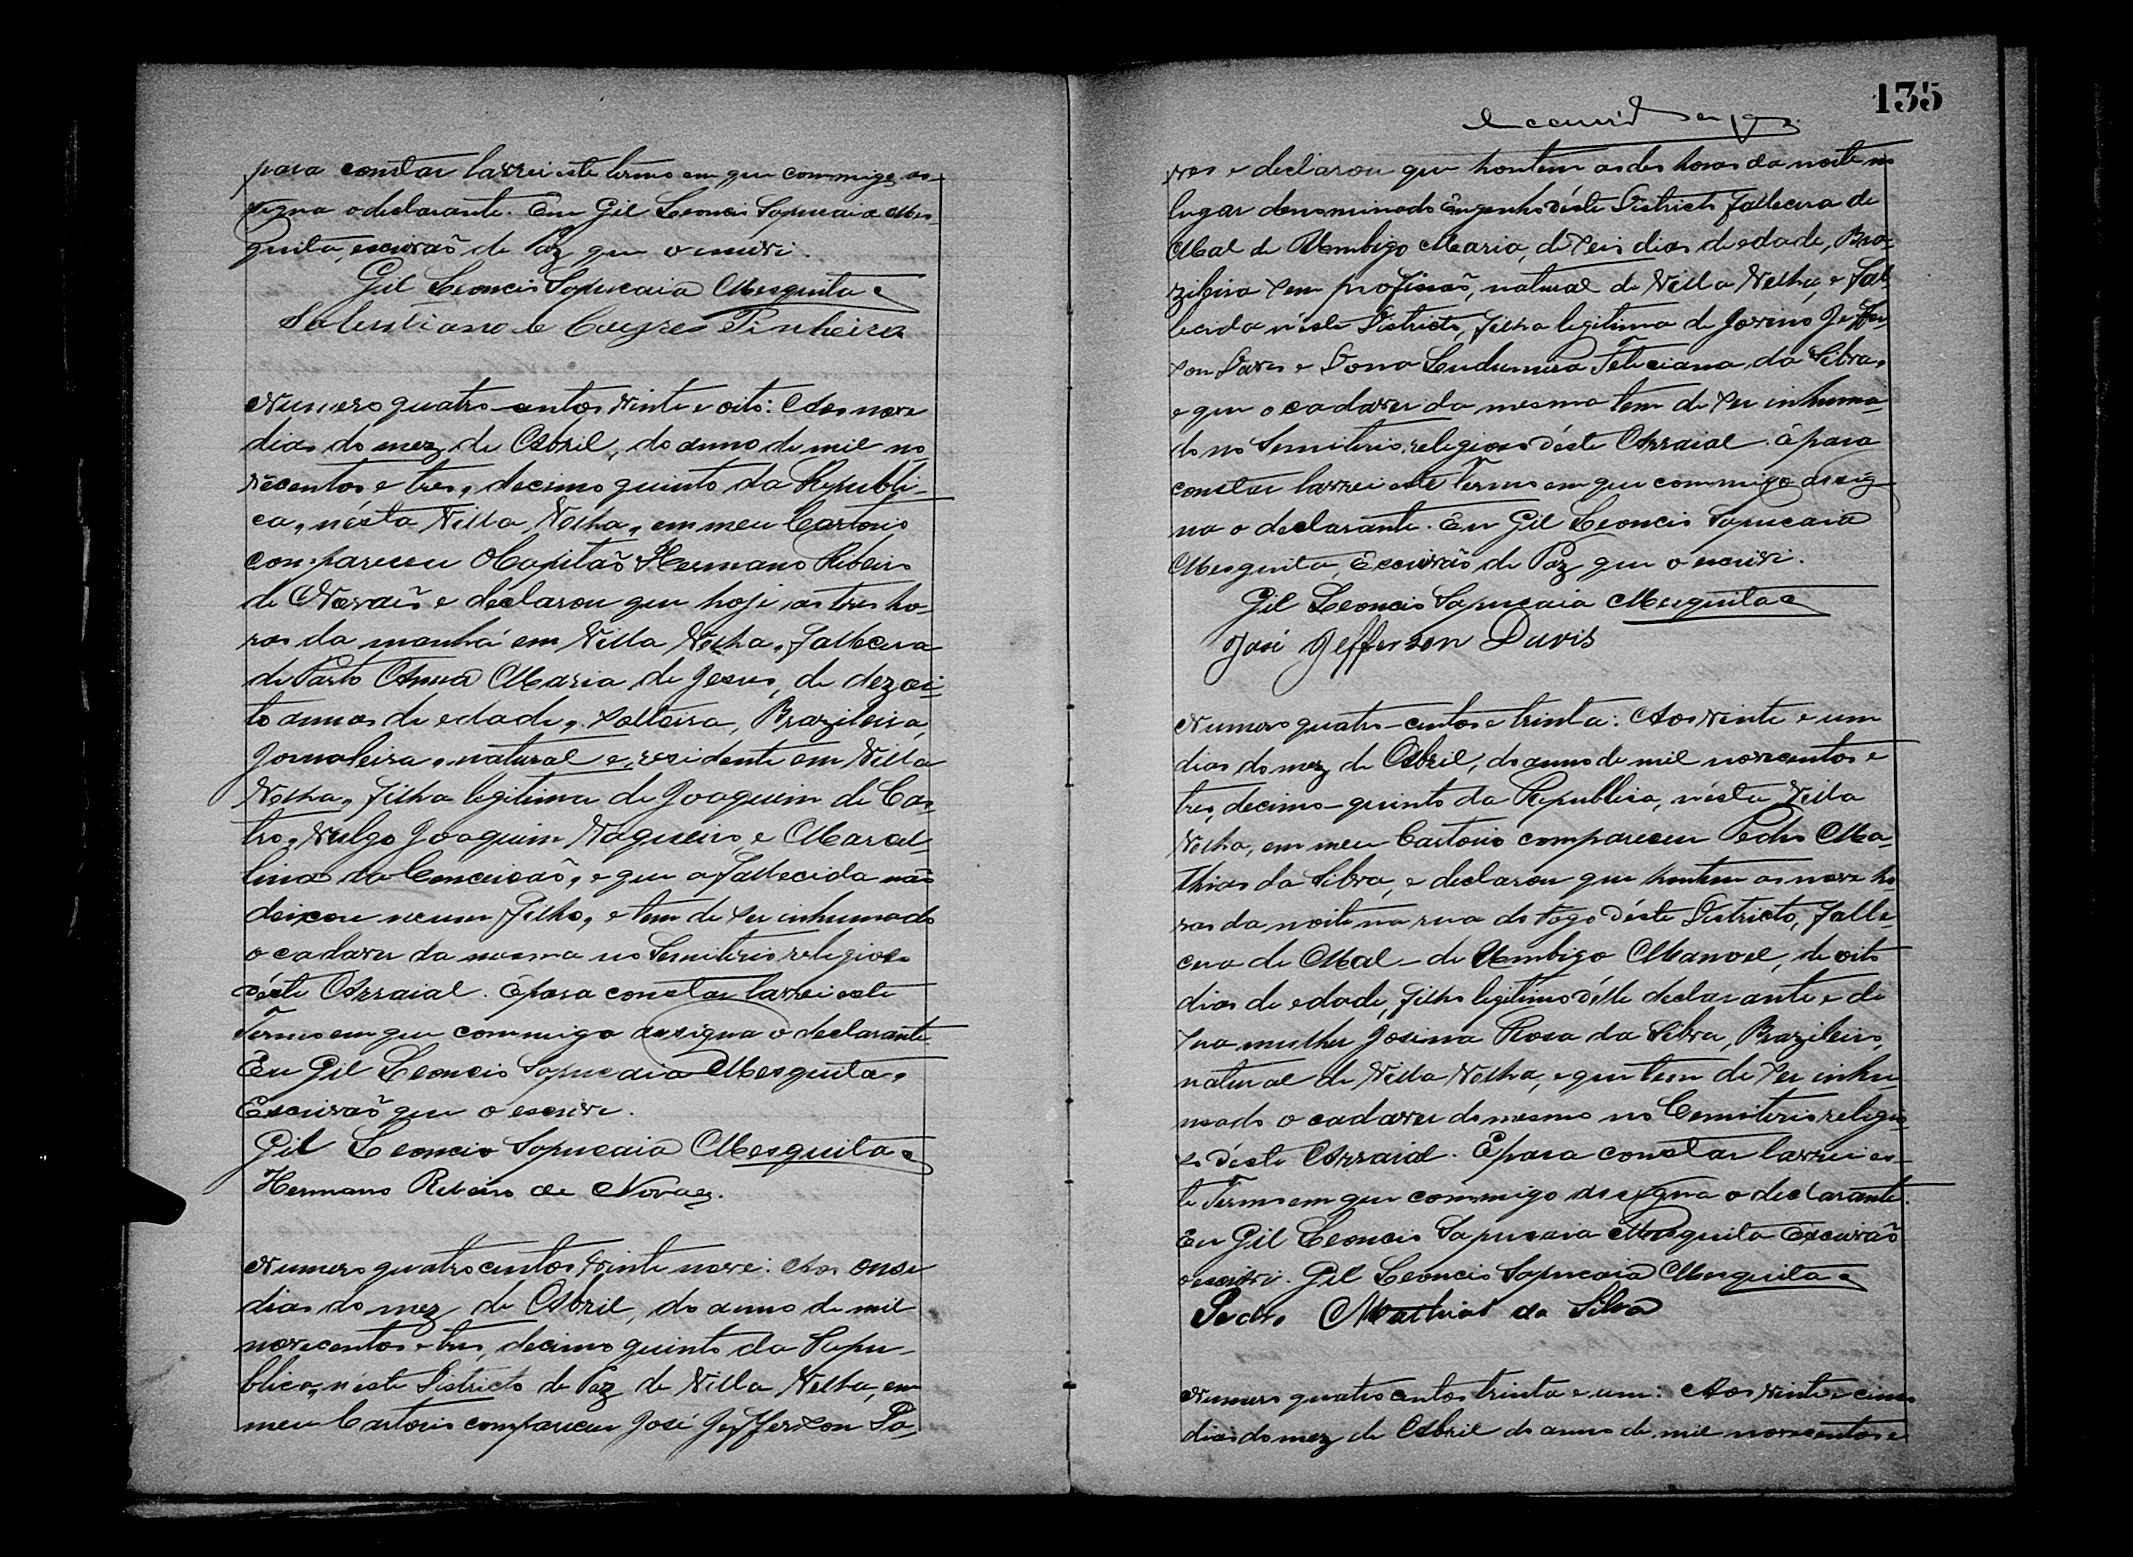 para constar lavrei este termo em que commigo as-
signa o declarante. Eu Gil Leoncio Sapucaia Mes-
quita, escrivaõ de Paz que o escrivi.
Gil Leoncio Sapucaia Mesquita
Salustiano e Cayres Pinheiro
Numero quatro-centos vinte e oito: Aos nove
dias do mez de Abril, do anno de mil no-
vecentos e tres, decimo quinto da Republi-
ca, nésta Villa Velha, em meu Cartorio
compareceu o Capitaõ Hermano Ribeiro
de Novaes e declarou que hoje as tres ho-
ras da manhã em Villa Velha, fallecera
de Parto Anna Maria de Jesus, de dezoi-
to annos de edade, solteira, Brazileira,
Jornaleira, natural e residente em Villa
Velha, filha legitima de Joaquim de Cas-
tro, vulgo Joaquim Vaqueiro e Marcel-
lina da Conceicaõ, e que a fallecida não
deixou nenum filho, e tem de ser inhumado
o cadaver da mesma no Semiterio religioso
déste Arraial. E para constar lavrei este
Termo em que commigo assigna o declarante.
Eu Gil Leoncio Sapucaia Mesquita,
Escrivaõ que o escrivi.
Gil Leoncio Sapucaia Mesquita
Hermano Ribeiro de Novaes.
Numero quatro centos vinte nove: Aos onse
dias do mez de Abril, do anno de mil
novecentos e tres, decimo quinto da Repu-
blica, néste Districto de Paz de Villa Velha, em
meu Cartorio compareceu José Jefferson Da-
135
ves e declarou que hontem as des horas da noite no
lugar denominado Engenho déste Districto fallecera de
Mal de Umbigo Maria, de seis dias de edade, Bra-
zileira sem profissaõ, natural de Villa Velha, e fal-
lecida néste Districto, filha legitima de Jovino Jeffer-
son Daves e Dona Feliciana da Silva,
e que o cadaver da mesma tem de ser inhuma-
do no Semiterio religioso déste Arraial. E para
constar lavrei este Termo em que commigo assig-
na o declarante. Eu Gil Leoncio Sapucaia
Mesquita, Escrivão de Paz que o escrivi.
Gil Leoncio Sapucaia Mesquita
José Jefferson Davis
Numero quatro-centos e trinta: Aos vinte e um
dias do mez de Abril, do anno de mil novecentos e
tres, decimo-quinto da Republica, nésta Villa
Velha, em meu Cartorio compareceu Pedro Ma-
thias da Silva, e declarou que hontem as nove ho-
ras da noite na rua do Fogo déste Districto, falle-
cera de Mal-de Umbigo Manoel, de oito
dias de edade, filho legitimo déste declarante e de
sua mulher Josina Rosa da Silva, Brazileiro,
natural de Villa Velha, e que tem de ser inhu-
mado o cadaver do mesmo no Cemiterio religio-
so déste Arraial. E para constar lavrei es-
te Termo em que commigo assigna o declarante.
Eu Gil Leoncio Sapucaia Mesquita Escrivão
o escrivi. Gil Leoncio Sapucaia Mesquita
Pedro Mathias da Silva
Numero quatro centos trinta e um: Aos vinte e cinco
dias do mez de Abril do anno de mil novecentos e